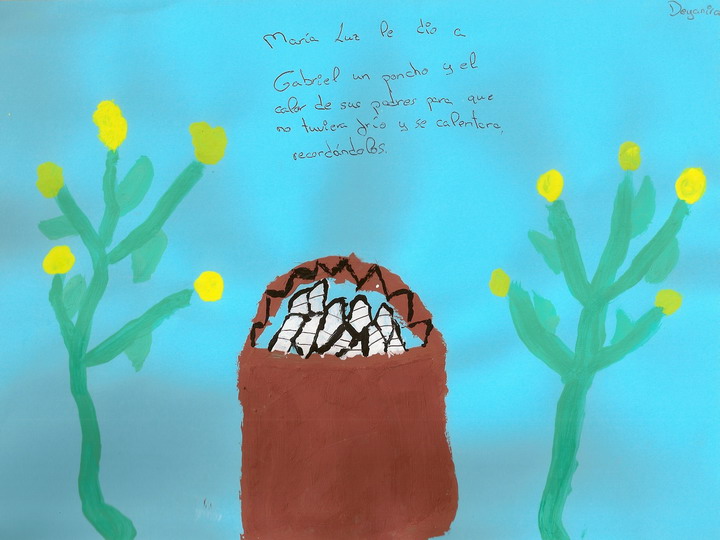 Deyanira
María Luz le dio a
Gabriel un poncho y el
calor de sus padres para que
no tuviera frío y se calentara,
recordándolos.